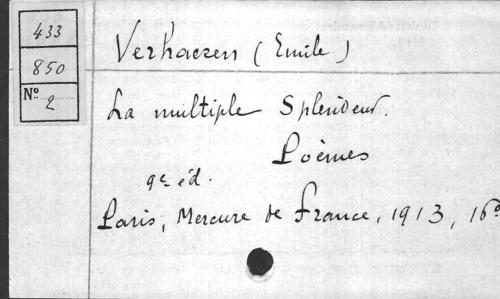 433
850
Nº 2
Verhaeren (Emile)
La multiple Splendeur.
Poèmes
9e éd.
Paris, Mercure de France, 1913, 16º